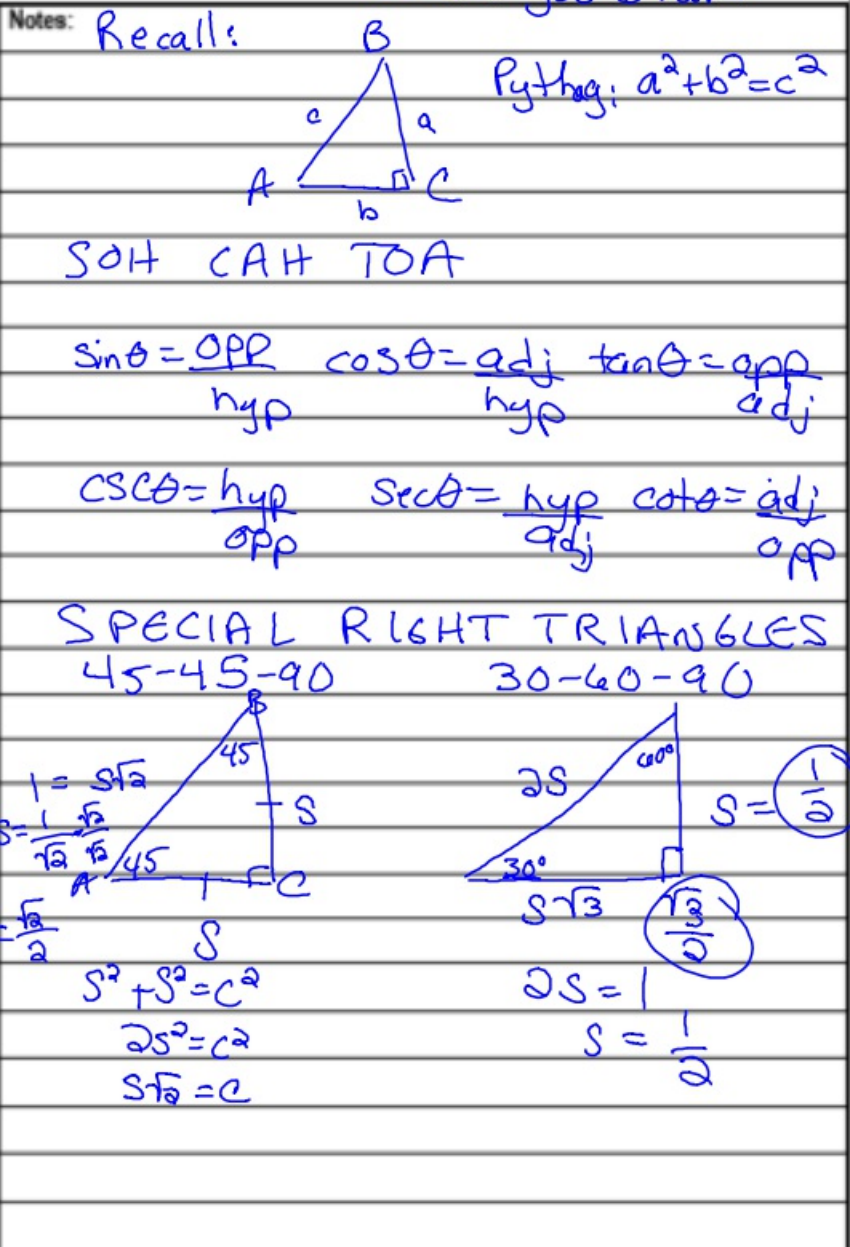 Notes: Recall:
B
Pythag: a²+b²=c²
c
a
A
C
b
SOH CAH TOA
sinθ = opp/hyp cosθ = adj/hyp tanθ = opp/adj
cscθ = hyp/opp secθ = hyp/adj cotθ = adj/opp
SPECIAL RIGHT TRIANGLES
45-45-90 30-60-90
B
45
60°
1 = s√2
2S
S
S = 1/2
S = 1/√2 √2/√2
45
A
C
30°
S√3 √3/2
= √2/2
S
S² + S² = C²
2S = 1
2s² = c²
S = 1/2
S√2 = C